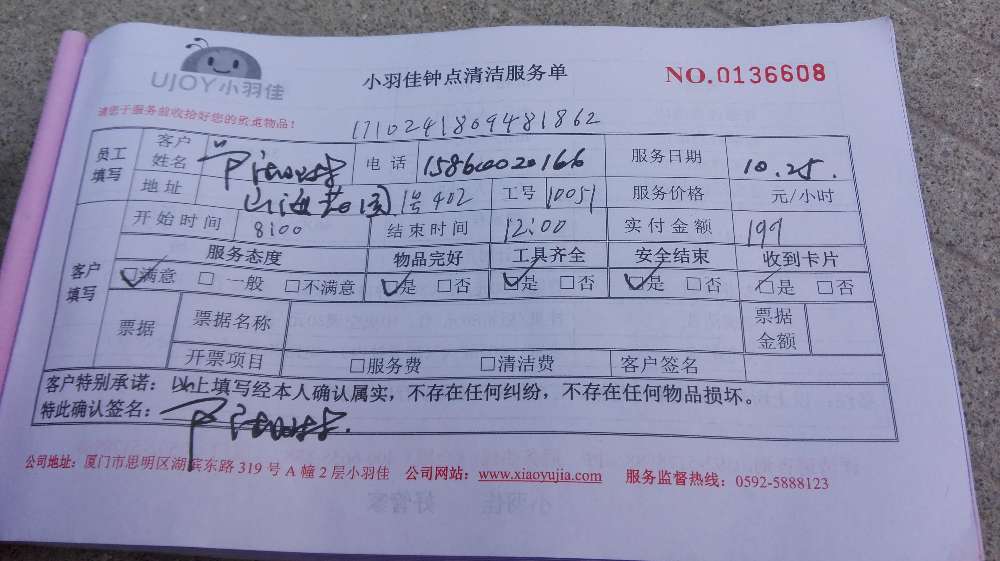 UJOY小羽佳
小羽佳钟点清洁服务单
NO.0136608
请您于服务前收拾好您的贵重物品!
1710241809481862
员工填写 客户姓名 电话 15860020166 服务日期 10.25.
地址 1号402 工号 10051 服务价格 元/小时
客户填写 开始时间 8:00 结束时间 12:00 实付金额 197
服务态度 物品完好 工具齐全 安全结束 收到卡片
☑满意 □一般 □不满意 ☑是 □否 ☑是 □否 ☑是 □否 ☑是 □否
票据 票据名称 票据金额
开票项目 □服务费 □清洁费 客户签名
客户特别承诺:以上填写经本人确认属实,不存在任何纠纷,不存在任何物品损坏。
特此确认签名:
公司地址:厦门市思明区湖滨东路 319 号 A 幢 2 层小羽佳 公司网站:www.xiaoyujia.com 服务监督热线:0592-5888123